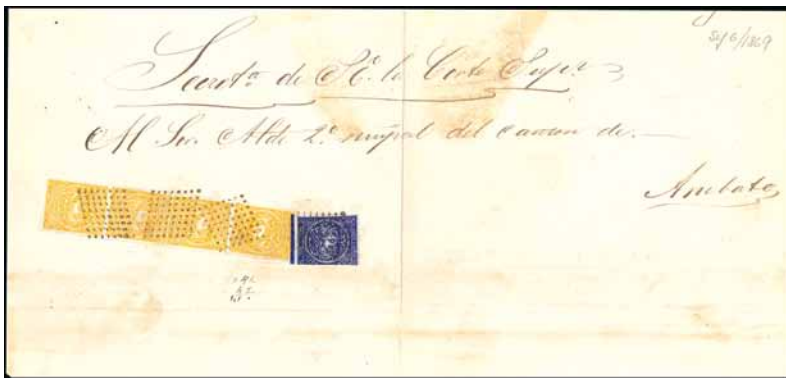 Sep 6/1869
Secret.ª de S.E. la Corte Sup.ª
Al Sor. Alde 2.º mupal del canton de.
Ambato